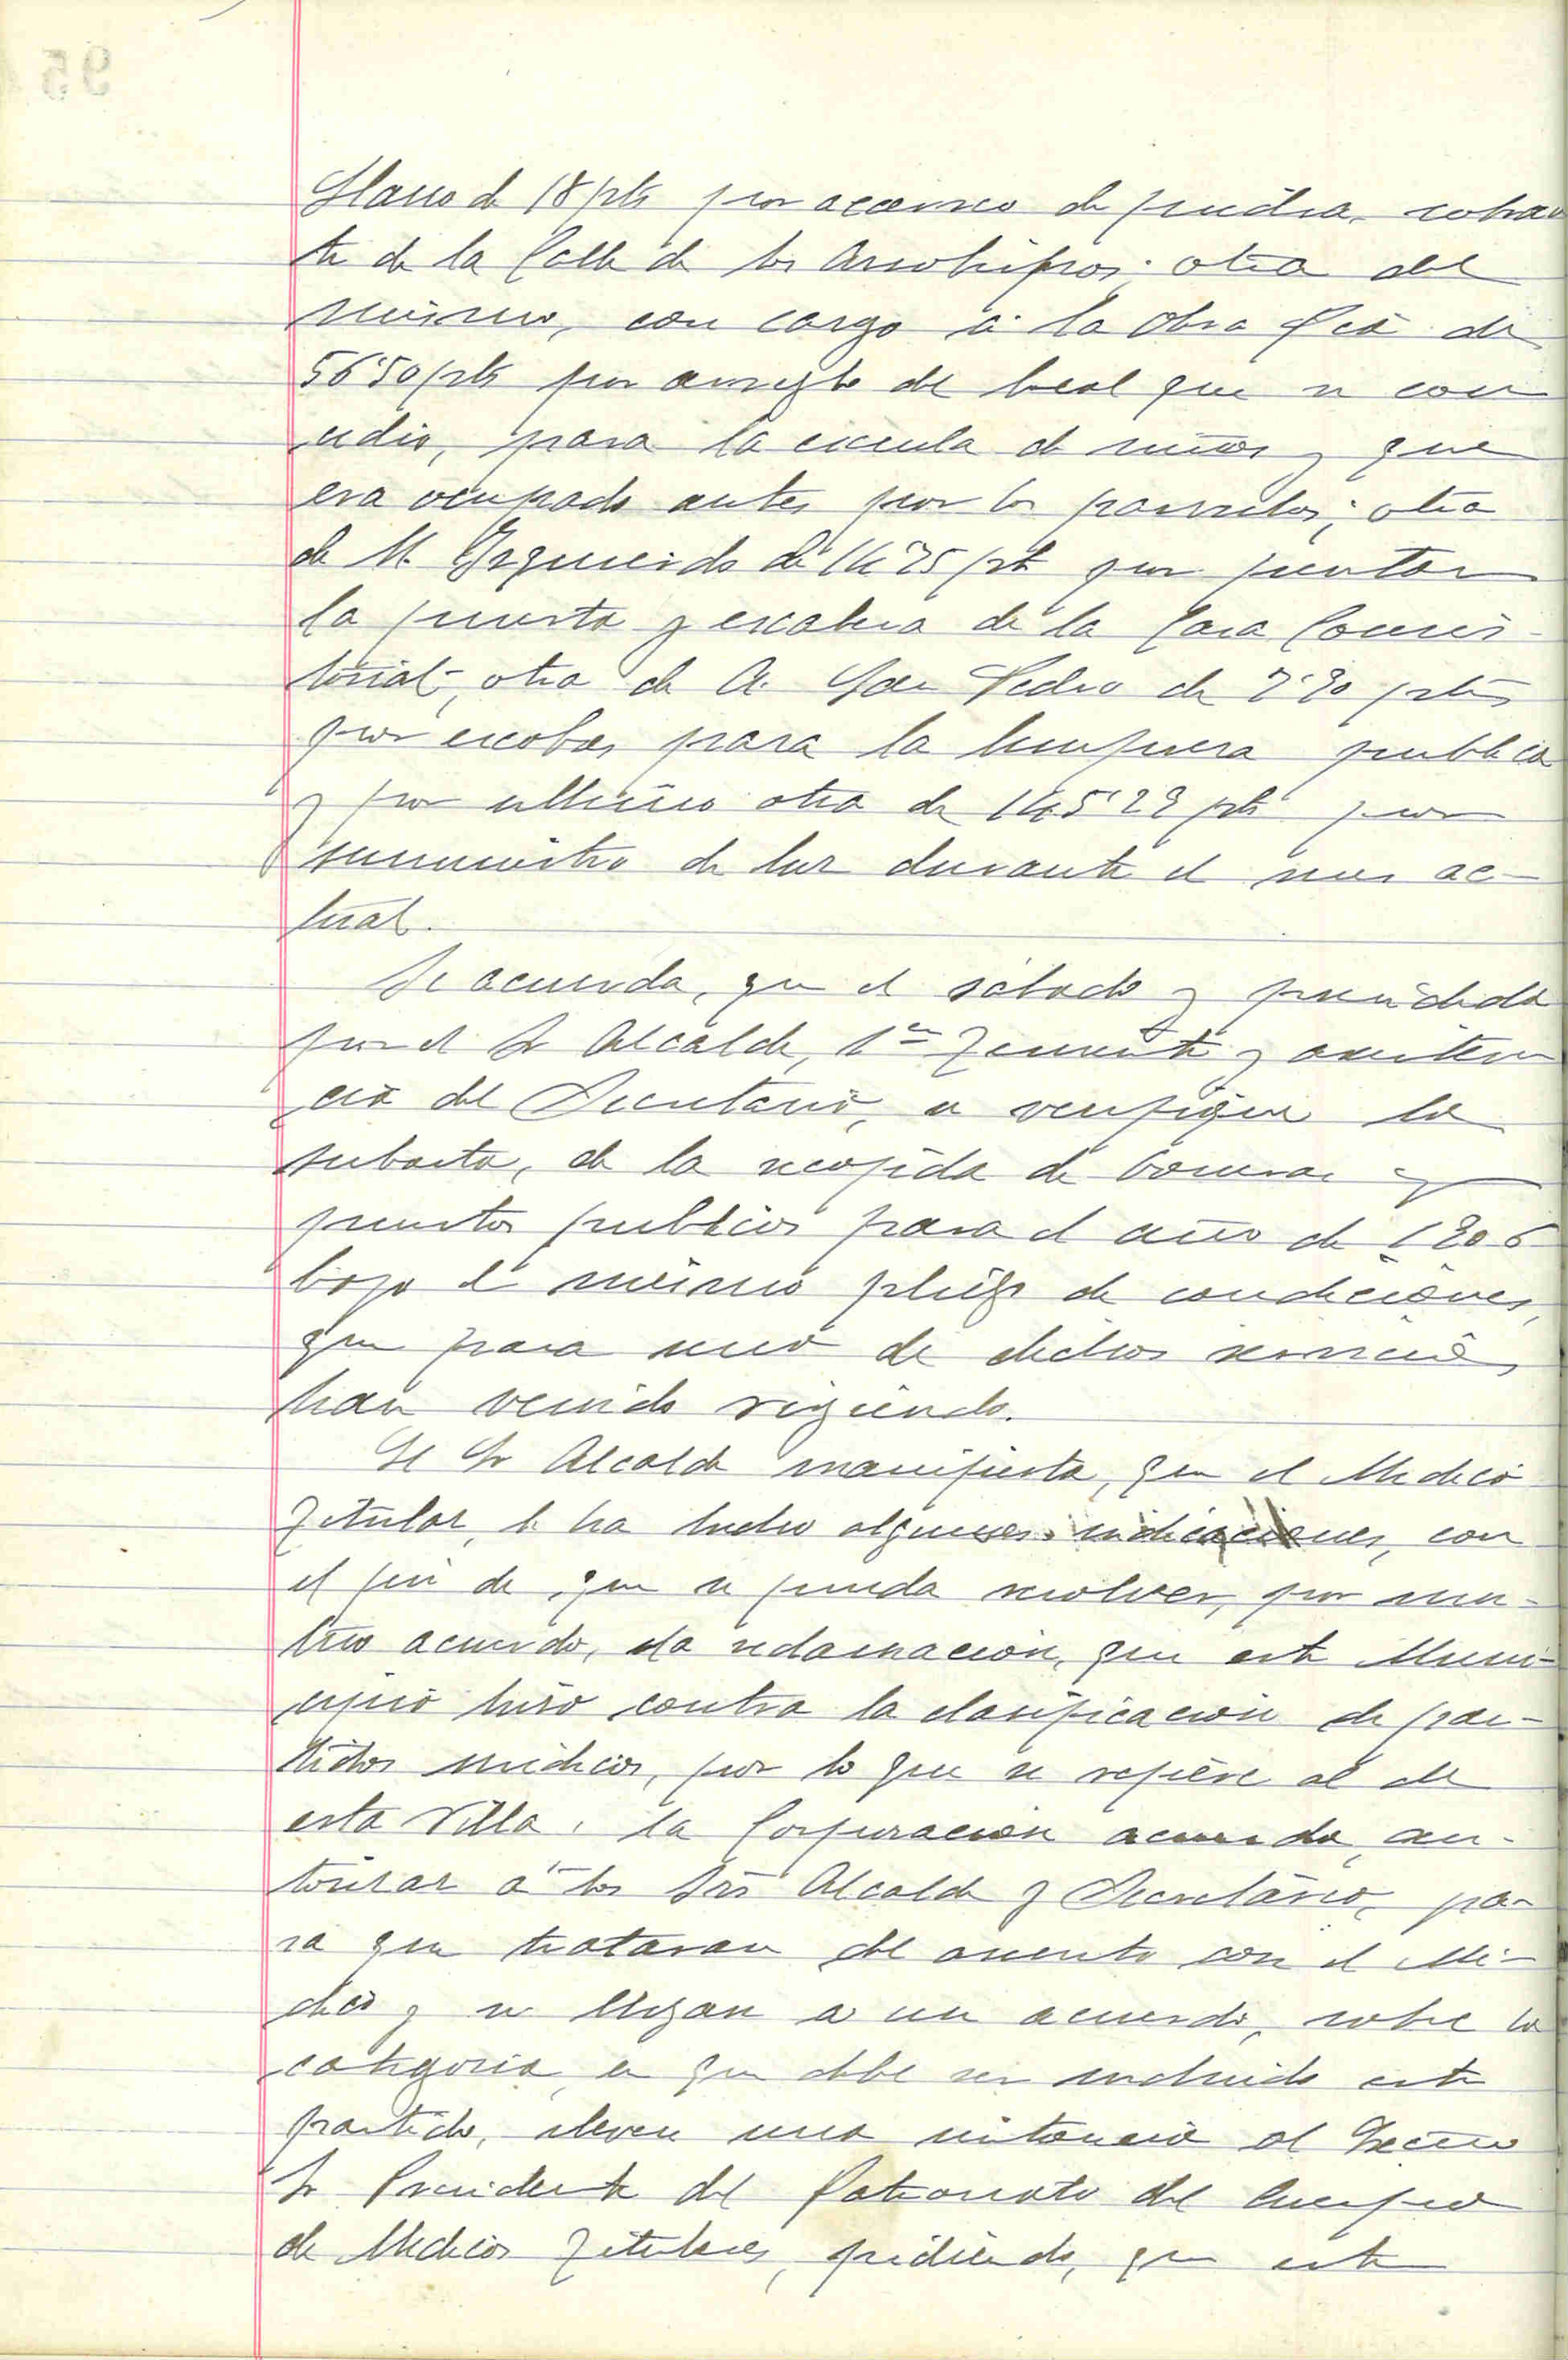 Llano de 18 pts por acarreo de piedra sobran
te de la Calle de los Arzobispos; otra del
mismo, con cargo a la Obra Pia de
56'50 pts por arreglo del local que se con
cedio, para la escuela de niños y que
era ocupado antes por los parvulos; otra
de M. Yzquierdo de 14'75 pts por pintar
la puerta y escalera de la Casa Consis-
torial; otra de A. San Pedro de 7'20 pts
por escobas para la limpieza publica
y por ultimo otra de 145'29 pts por
suministro de luz durante el mes ac-
tual.
Se acuerda, que el sabado y presidida
por el Sr Alcalde, 1er Teniente y asisten
cia del Secretario, se verifique la
subasta, de la recogida de basuras y
puestos publicos para el año de 1906
bajo el mismo pliego de condiciones,
que para uno de dichos servicios,
han venido rigiendo.
El Sr Alcalde manifiesta, que el Medico
Titular, le ha hecho algunas indicaciones, con
el fin de que se pueda resolver, por mu-
tuo acuerdo, la reclamacion, que este Muni-
cipio hizo contra la clasificacion de par-
tidos medicos, por lo que se refiere al de
esta Villa. La Corporacion acuerda, au-
torizar a los Srs Alcalde y Secretario, pa-
ra que trataran del asunto con el Me-
dico y si llegan a un acuerdo, sobre la
categoria, en que debe ser incluido este
partido, eleven una instancia al Excmo
Sr Presidente del Patronato del Cuerpo
de Medicos Titulares, pidiendo, que este
95